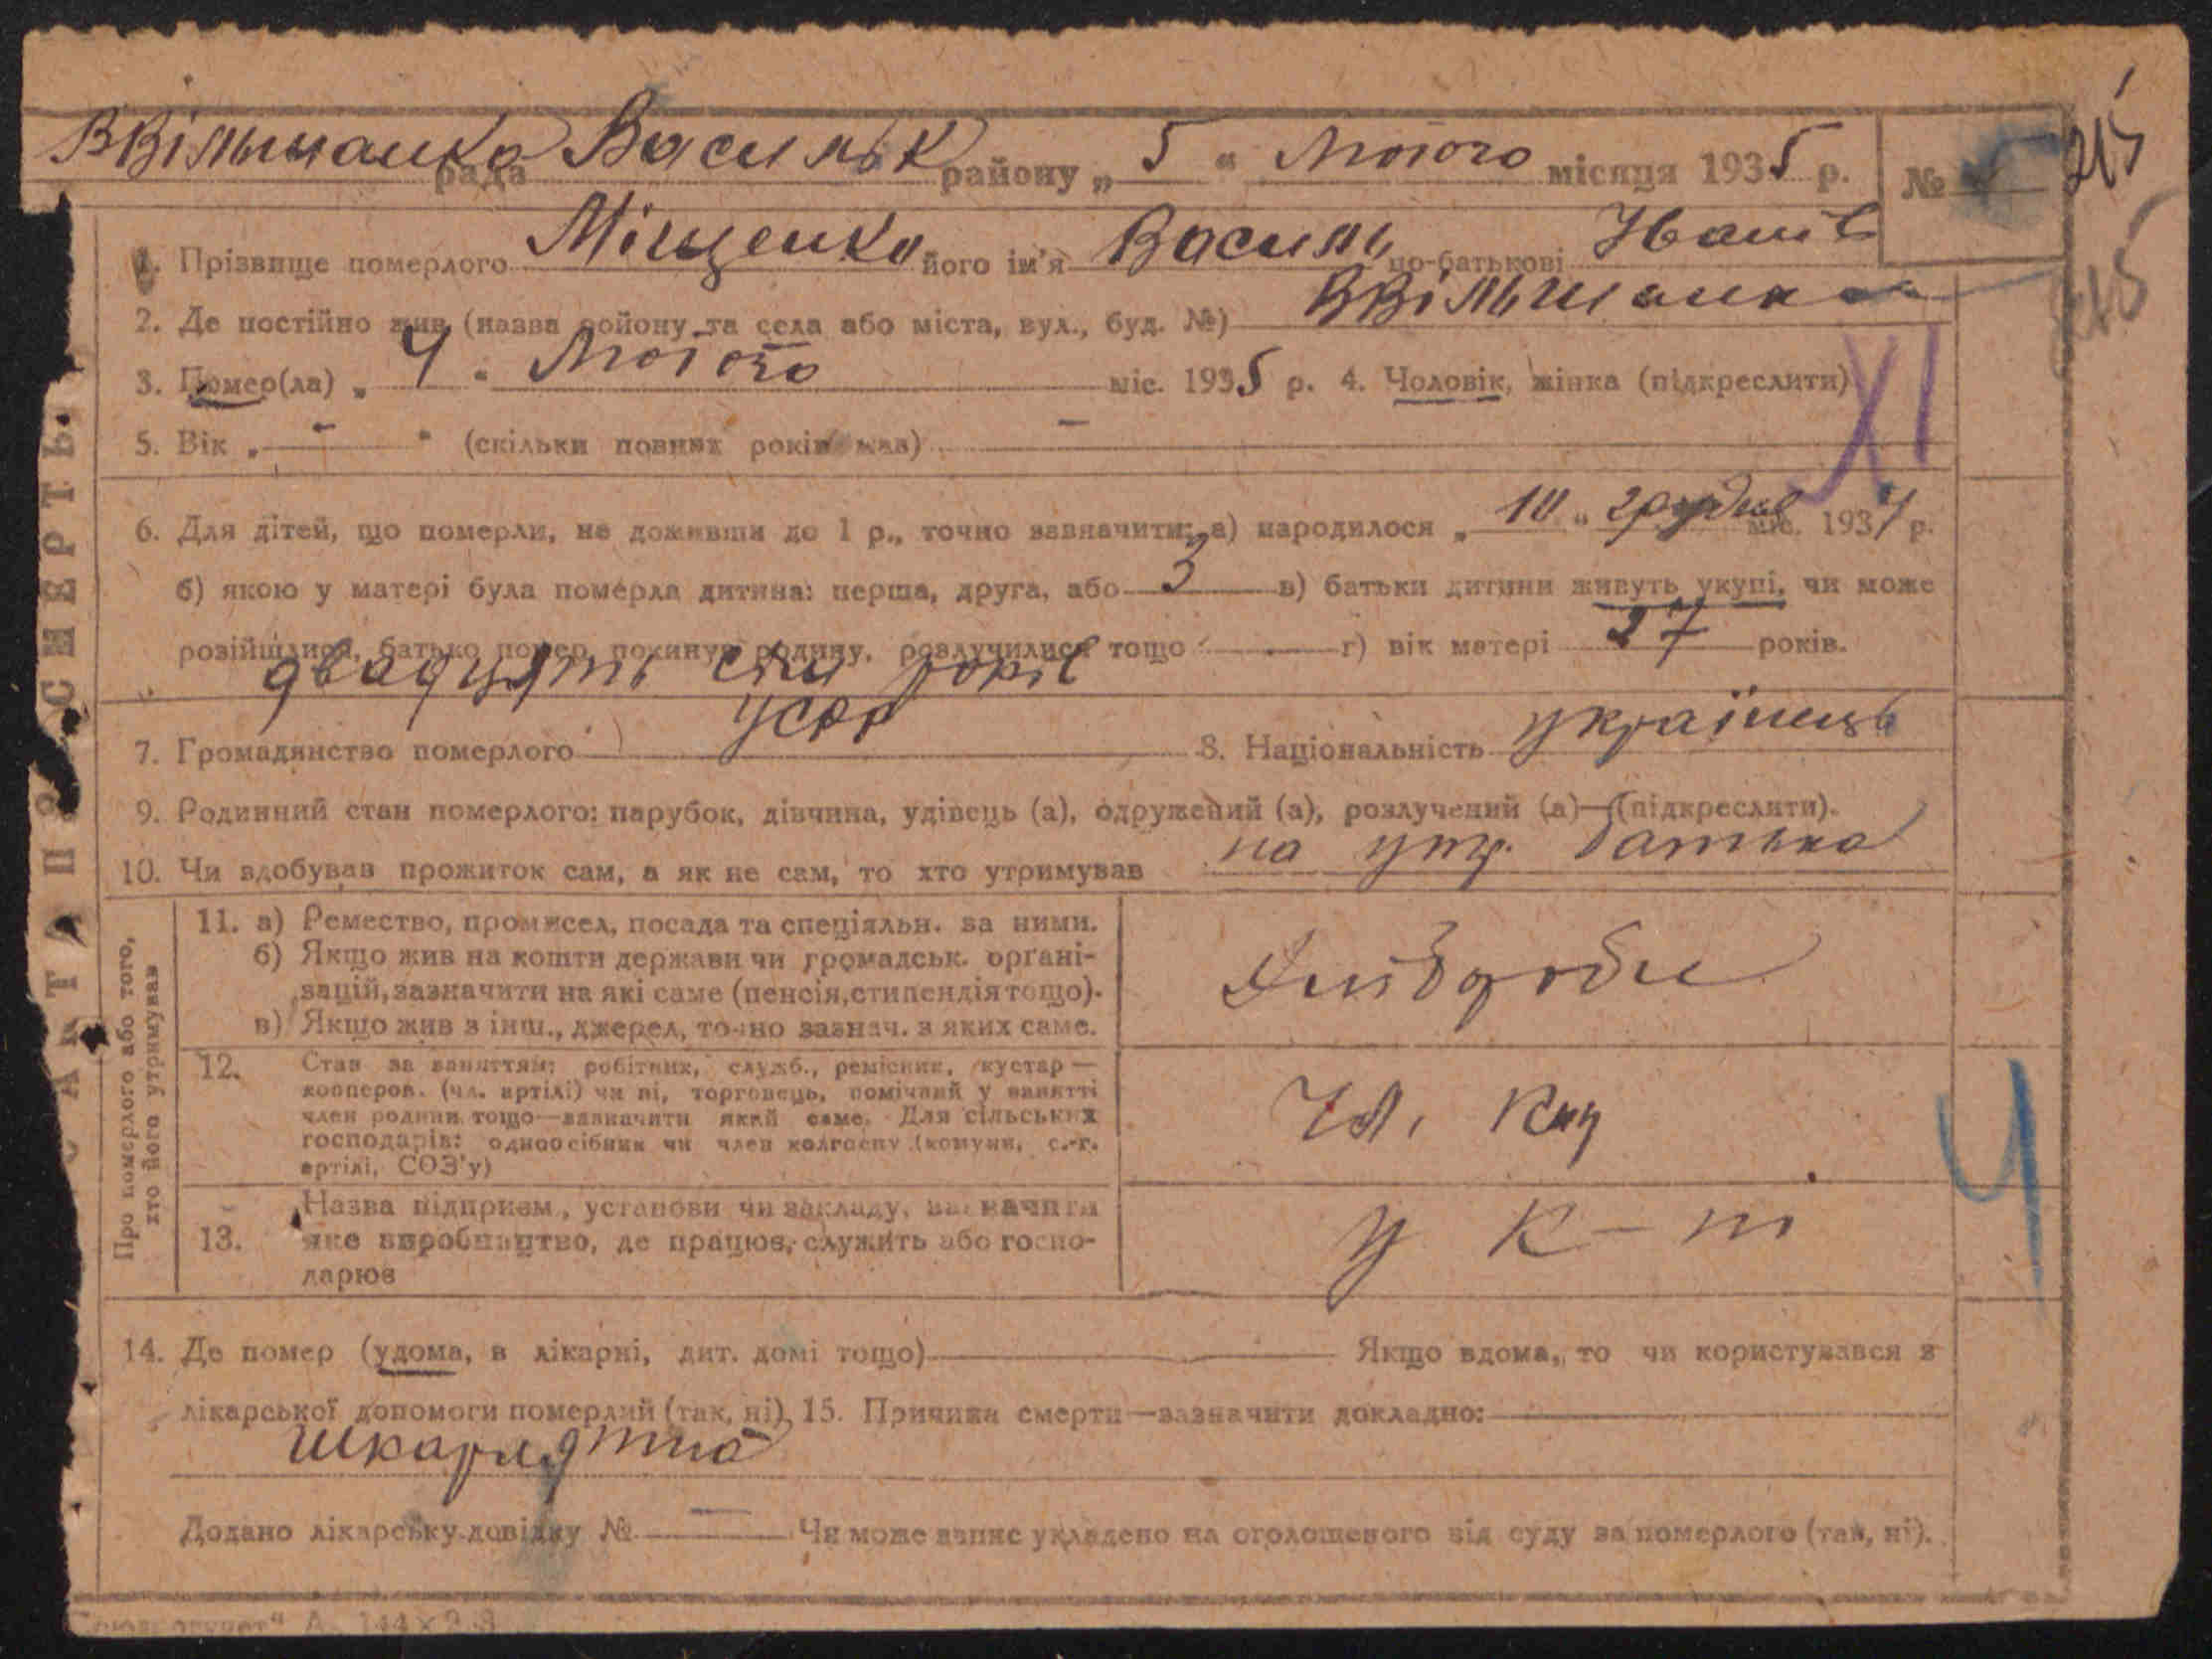 ВВільшанка рада Васильк району „ 5 “ Лютого місяця 1935 р. № 5
215
1. Прізвище померлого Міщенко його ім'я Василь по-батькові Іванів
2. Де постійно жив (назва району та села або міста, вул., буд. №) ВВільшанка
3. Помер(ла) „ 4 “ Лютого міс. 1935 р. 4. Чоловік, жінка (підкреслити)
XI
5. Вік „ — “ (скільки повних років мав) —
6. Для дітей, що померли, не доживши до 1 р., точно зазначити: а) народилося „ 10 “ грудня міс. 1934 р.
б) якою у матері була померла дитина: перша, друга, або 3 в) батьки дитини живуть укупі, чи може
розійшлися, батько помер, покинув родину, розлучилися тощо — г) вік матері 27 років.
двадцять сім років
7. Громадянство померлого УСРР 8. Національність українець
9. Родинний стан померлого: парубок, дівчина, удівець (а), одружений (а), розлучений (а)—(підкреслити).
10. Чи здобував прожиток сам, а як не сам, то хто утримував на утр. батька
Про померлого або того,
хто його утримував
11. а) Ремество, промисел, посада та спеціяльн. за ними.
б) Якщо жив на кошти держави чи громадськ. органі-
зацій, зазначити на які саме (пенсія, стипендія тощо).
в) Якщо жив з інш., джерел, точно зазнач. з яких саме.
12. Стан за заняттям: робітник, служб., ремісник, кустар —
кооперов. (чл. артілі) чи ні, торговець, помічний у занятті
член родини тощо—зазначити який саме. Для сільських
господарів: одноосібник чи член колгоспу (комуни, с.-г.
артілі, СОЗ'у)
Чл. к
4
13. Назва підприєм., установи чи закладу, зазначити
яке виробництво, де працює, служить або госпо-
дарює
у к-т
14. Де помер (удома, в лікарні, дит. домі тощо) — Якщо вдома, то чи користувався з
лікарської допомоги померлий (так, ні). 15. Причина смерти—зазначити докладно:
шкарлятина
Додано лікарську довідку № — Чи може запис укладено на оголошеного від суду за померлого (так, ні).